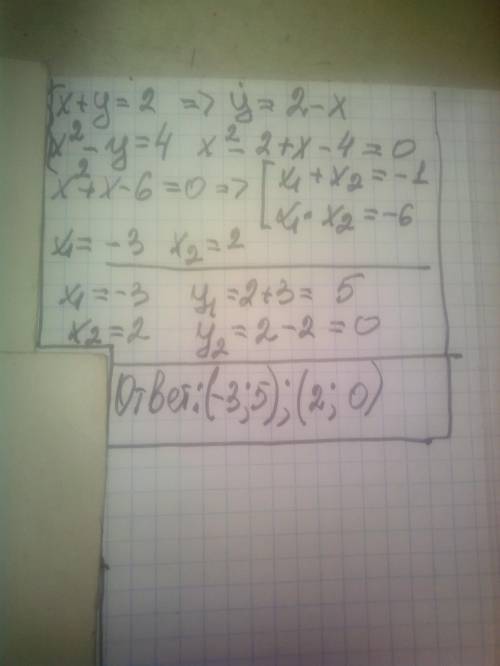 {x+y=2 => y=2-x
{x²-y=4 x²-2+x-4=0
x²+x-6=0=> [x₁+x₂=-1
x₁·x₂=-6
x₁=-3 x₂=2
x₁=-3 y₁=2+3=5
x₂=2 y₂=2-2=0
Ответ:(-3;5);(2;0)